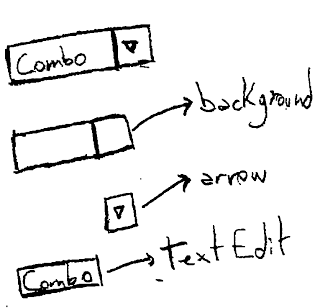 Combo
background
arrow
Combo
Text Edit